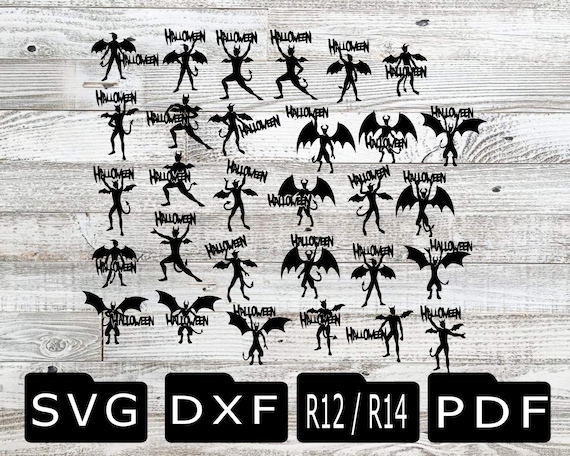 HALLOWEEN HALLOWEEN HALLOWEEN HALLOWEEN HALLOWEEN HALLOWEEN
HALLOWEEN HALLOWEEN HALLOWEEN HALLOWEEN HALLOWEEN HALLOWEEN
HALLOWEEN HALLOWEEN HALLOWEEN HALLOWEEN HALLOWEEN HALLOWEEN
HALLOWEEN HALLOWEEN HALLOWEEN HALLOWEEN HALLOWEEN HALLOWEEN
HALLOWEEN HALLOWEEN HALLOWEEN HALLOWEEN HALLOWEEN HALLOWEEN
SVG DXF R12 / R14 PDF